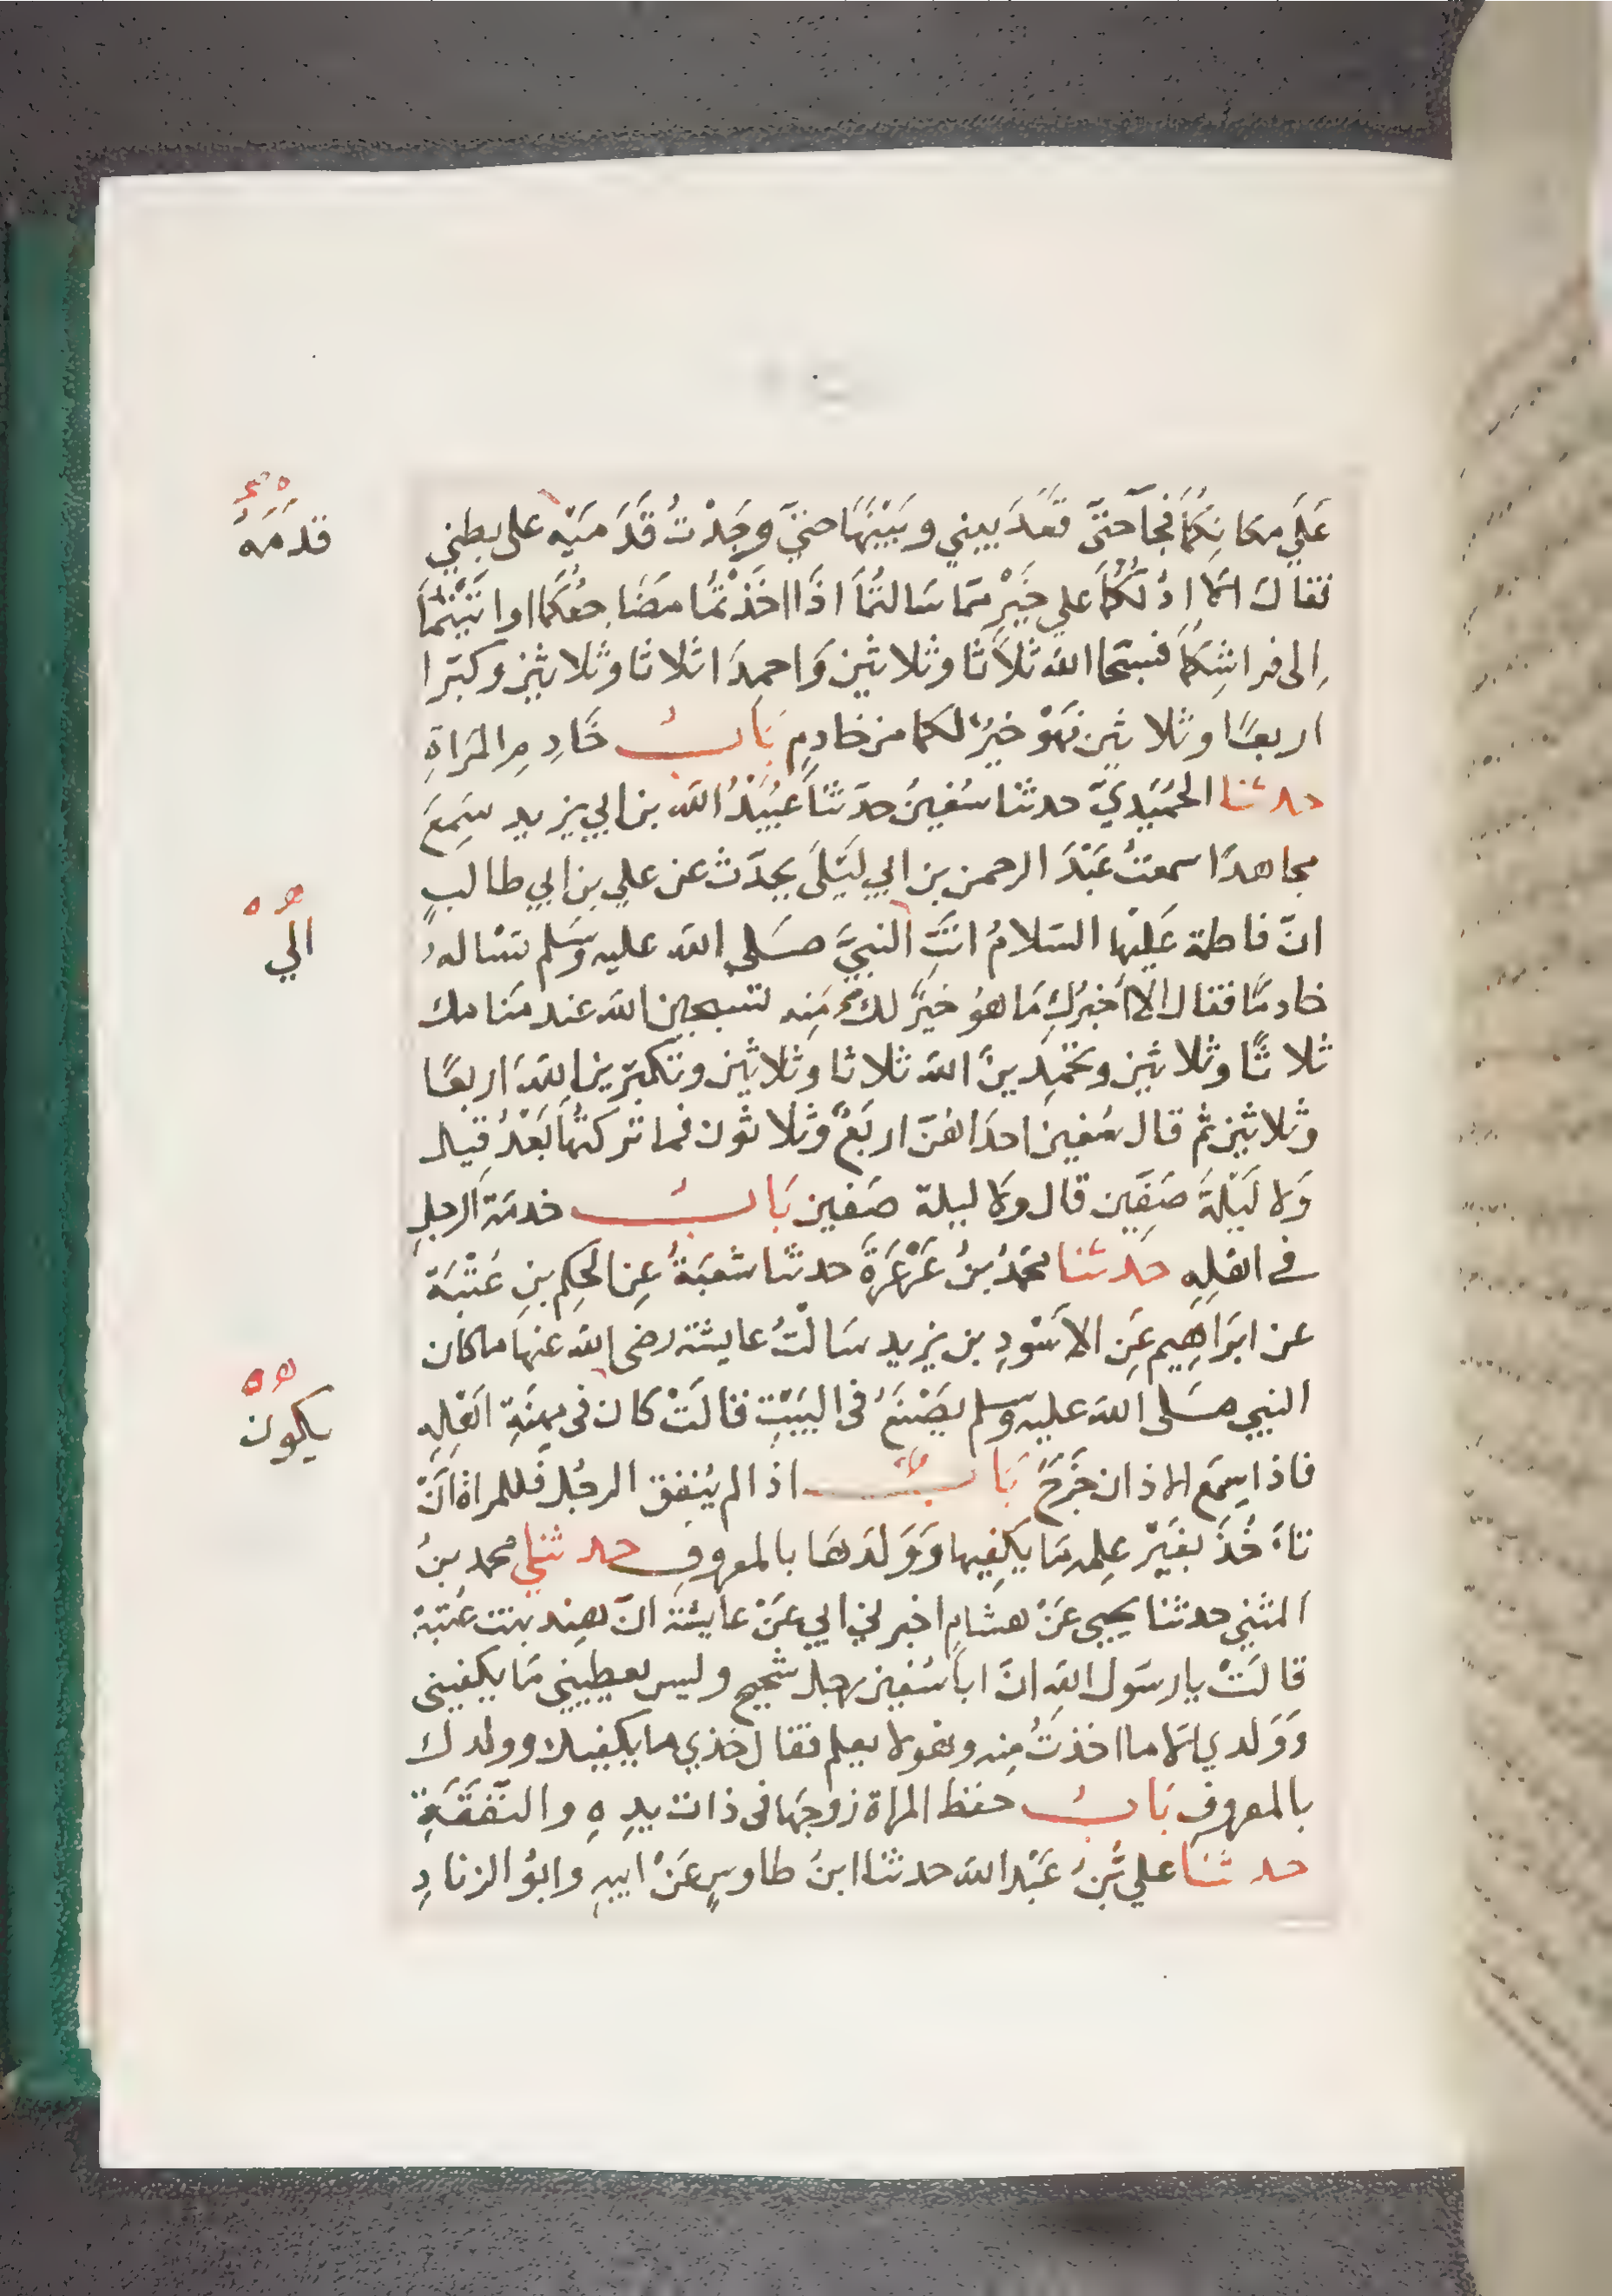 عَلَي مكانِكُمَا فَجَآ حَتّى قَعَدَ بيني وبَيْنَهَا حتيّ وجَدْتُ قَدَميَه على بطني
فقال الَا ادُلكُمَا علي خَيْرٍ ممّا سَالتُمَا اذَا اخَذْتُما مضَاجعَكما او اتَيْتُمَا
اِلى فراشِكمَا فسبحا اللهَ ثلاَثا وثلاثين وَاحمِدَا ثلاثا وثلاثين وكبّرا
اربعًا وثلاثين فهْوَ خيرٌ لكما من خادِمٍ بَابُ خَادِمِ المَرَاةِ
حدثنا الحُمَيْديّ حدثنا سُفينُ حدّثنا عُبَيْدُ الله بن ابي يزيد سَمِعَ
مجاهدًا سمعتُ عَبْدَ الرحمن بن ابي ليَلَى يحدّث عن علي بن ابي طالبٍ
انّ فاطمة عَليْها السّلامُ اتَتِ النبيَّ صَلى الله عليه وسَلم تسْاله
خادمًا فقال الا اُخبرُكِ مَا هوُ خيرٌ لكِ مِنه تسبحين الله عند مَنامك
ثلاثًا وثلاثين وتحمَدِينَ الله ثلاثا وثلاثين وتكبّرين اللهَ اربعًا
وثلاثين ثم قال سُفين احدَاهُنّ اربَعٌ وثلاثون فما تركتُهَا بَعْدُ قِيل
وَلا لَيْلَةَ صِفّين قال ولا ليلة صفين بَابُ خدمَة الرجلِ
في اهْلِهِ حَدثنا محمّدُ بنُ عَرْعَرَةَ حدثنا شُعْبَةُ عِن الحكم بنِ عُتْبَة
عن ابرَاهِيم عَن الاسَوْدِ بن يزيد سَالْتُ عايشة رضى الله عنها ما كان
النبي صَلى الله عليه وسلم يَصْنَعُ فى البيَتِ قالَتْ كان فى مِهنَةِ اهْلِهِ
فاذا سِمَع الاذان خَرَجَ بَابُ اذا لم يُنفق الرجُل فَللمراة اَنْ
تَاخُذَ بغَيْر عِلمه مَا يَكفِيها وَوَلدَها بالمعروفِ حدثنى محمد بنُ
المثني حدثنا يحيى عَنْ هشامٍ اخبرني ابي عَنْ عايشة انّ هِند بنت عُتْبَة
قالَتْ يا رسَول الله انّ ابا سُفين رجل شحيح وليس يعطيني مَا يكفيني
وَوَلدي الا ما اخذتُ مِنه وهو لا يعلم فقال خذي ما يكفيك وولدك
بالمعروفِ بَابُ حفظ المراة زوجهَا فى ذات يدِهِ والنّفَقَةِ
حدثنا علي بْنُ عَبْد الله حدثنا ابنُ طاوسٍ عَنْ ابيهِ وابوُ الزنادِ
قدمَه
الي
يكون